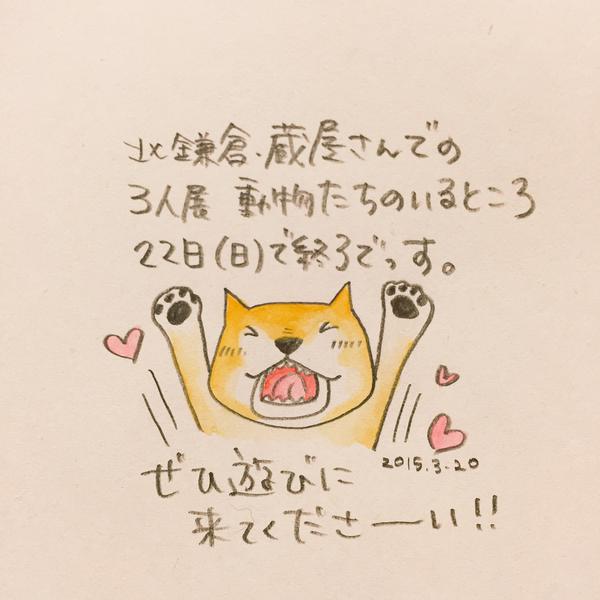 北鎌倉.蔵屋さんでの
3人展 動物たちのいるところ
22日(日)で終了でっす。
2015.3.20
ぜひ遊びに
来てくださーい!!